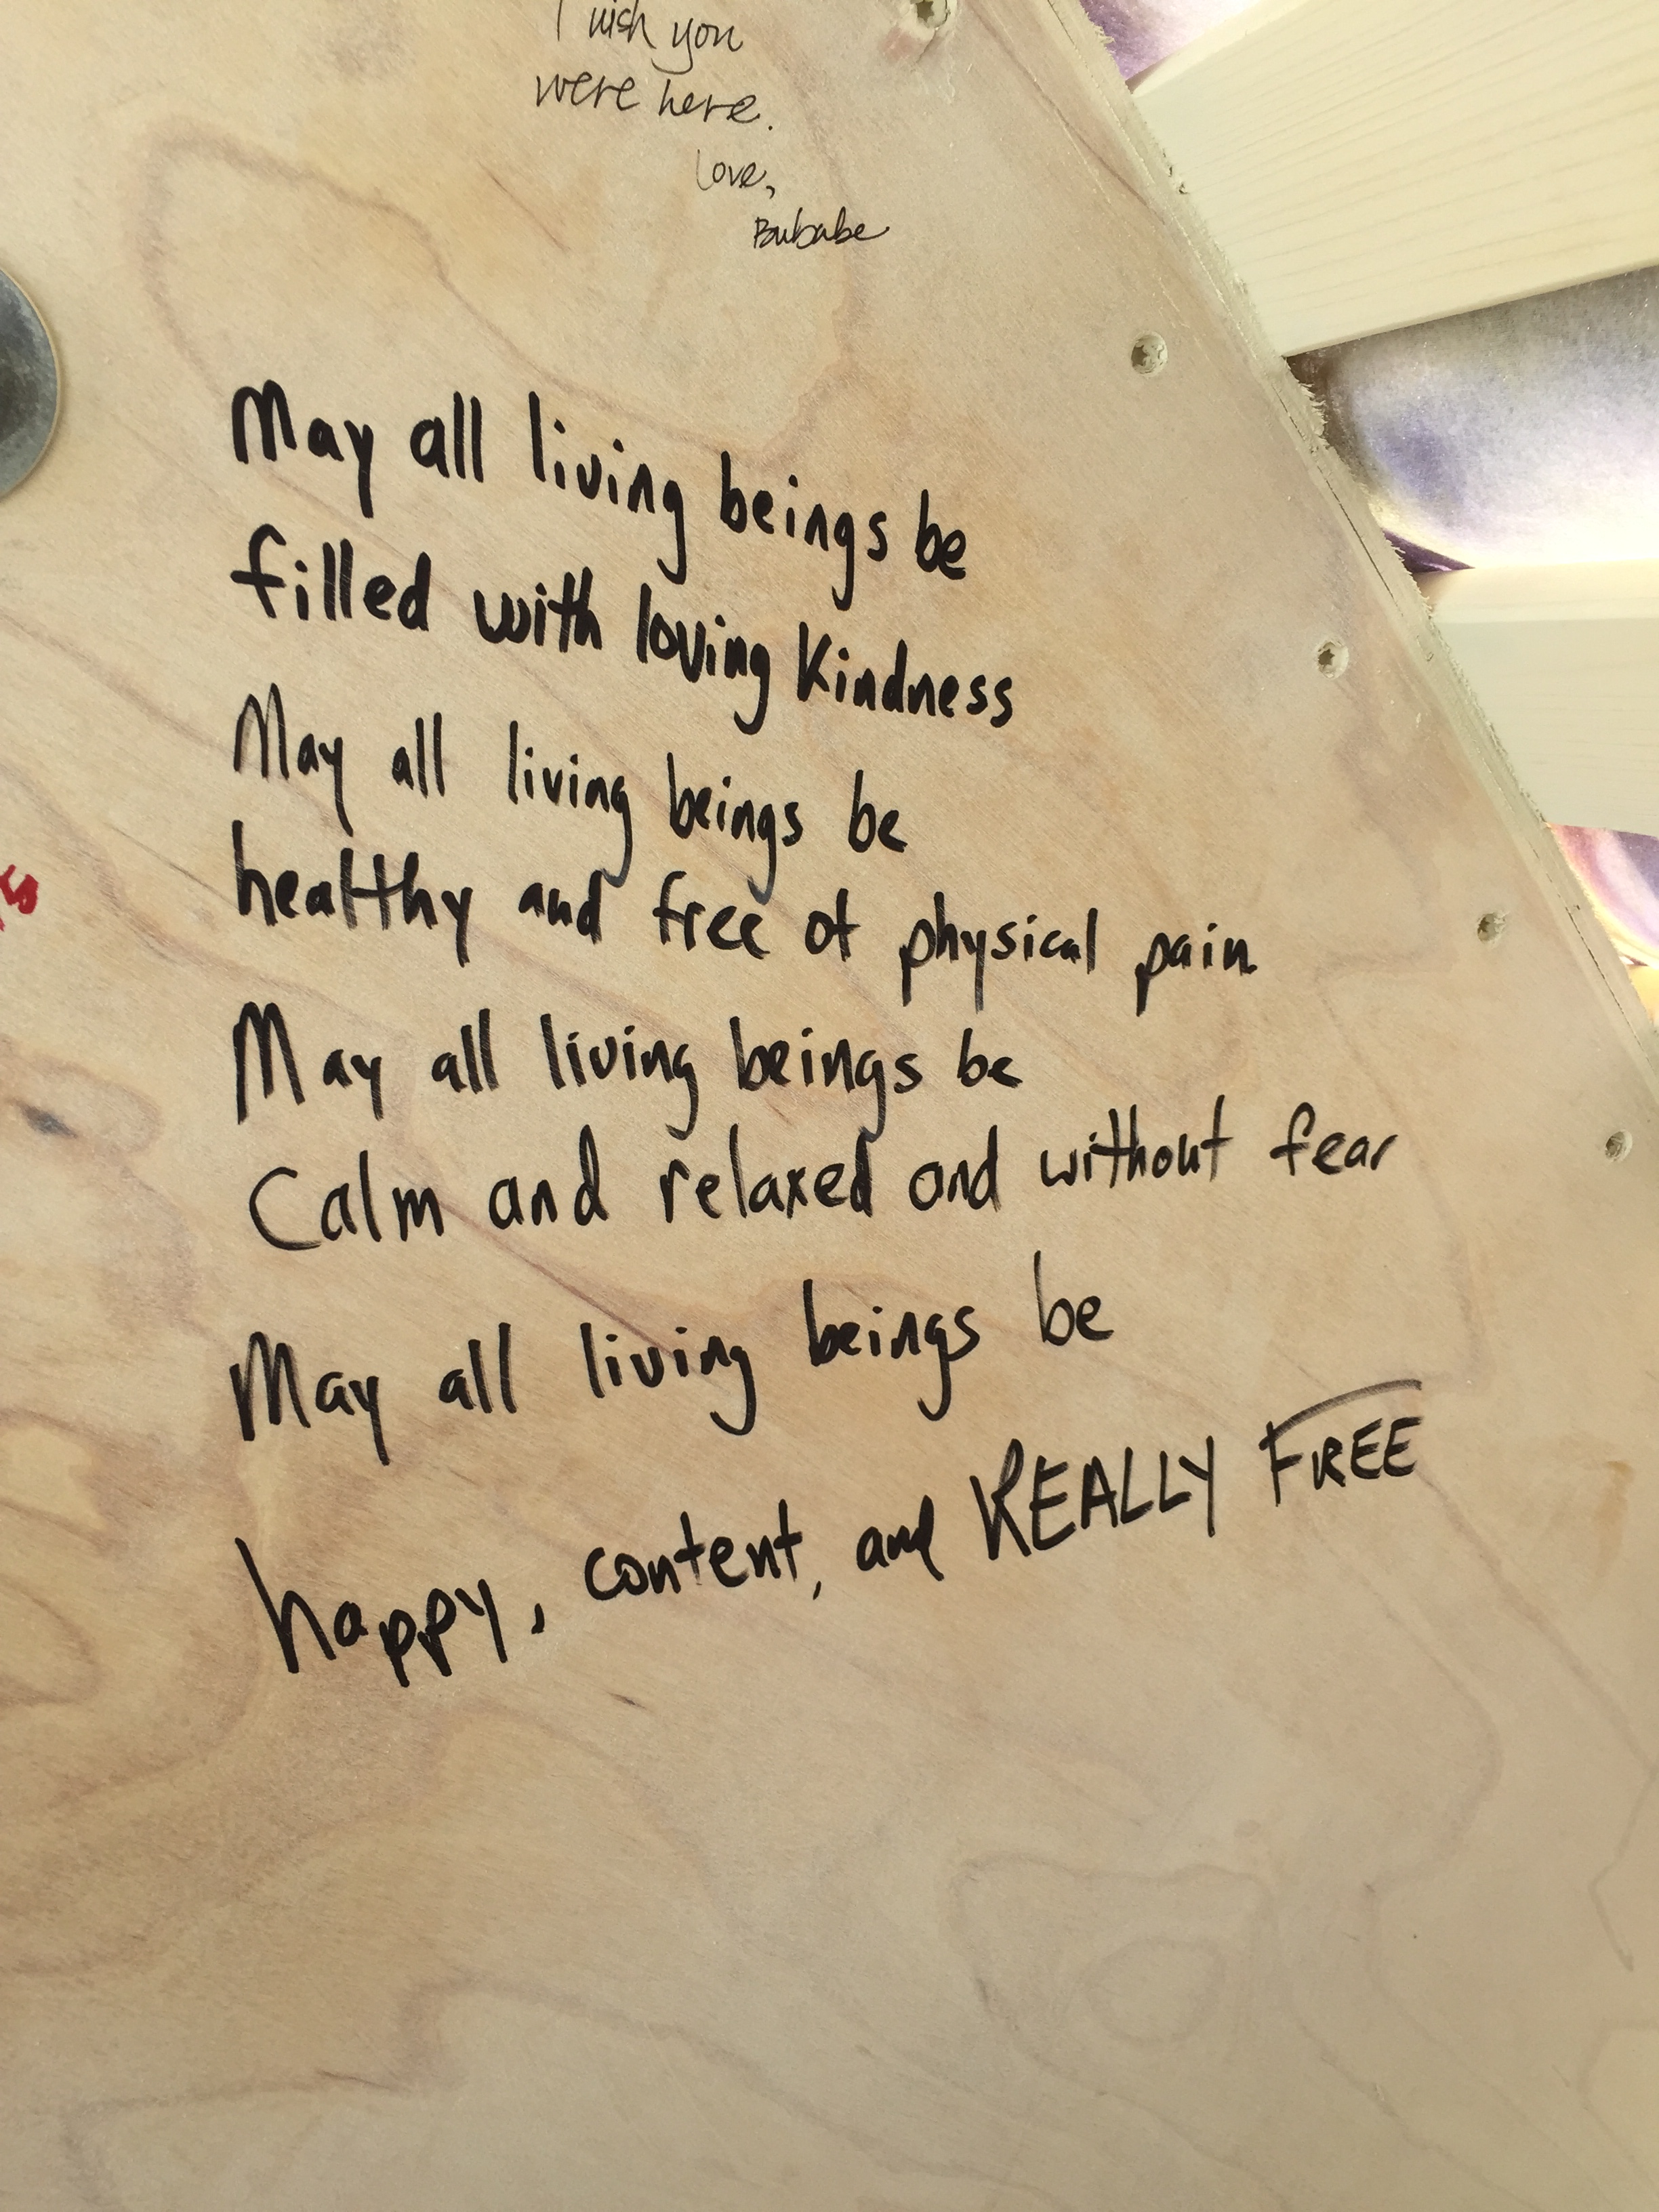 I wish you
were here.
Love,
Bubabe
May all living beings be
filled with loving Kindness
May all living beings be
healthy and free of physical pain
May all living beings be
Calm and relaxed and without fear
May all living beings be
happy, content, and REALLY FREE